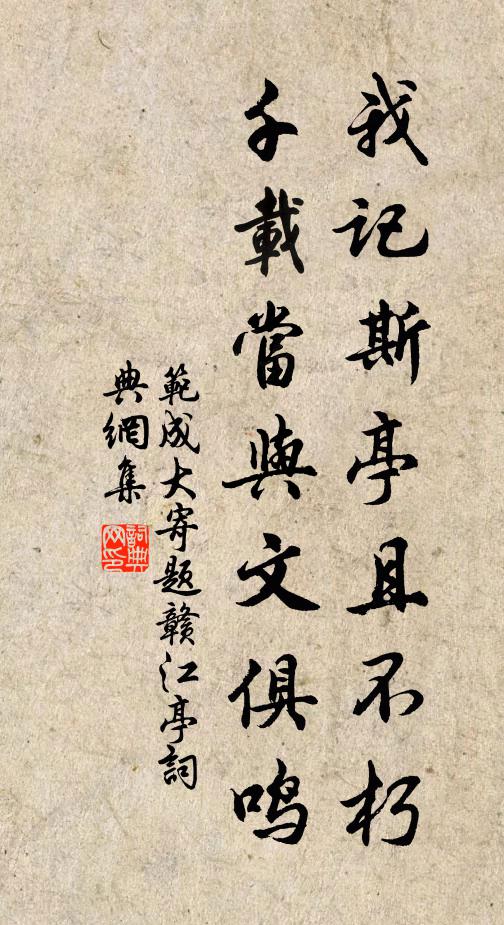 我记斯亭且不朽
千載當與文俱鸣
範成大寄题贛江亭詞
典網集
詞典网印